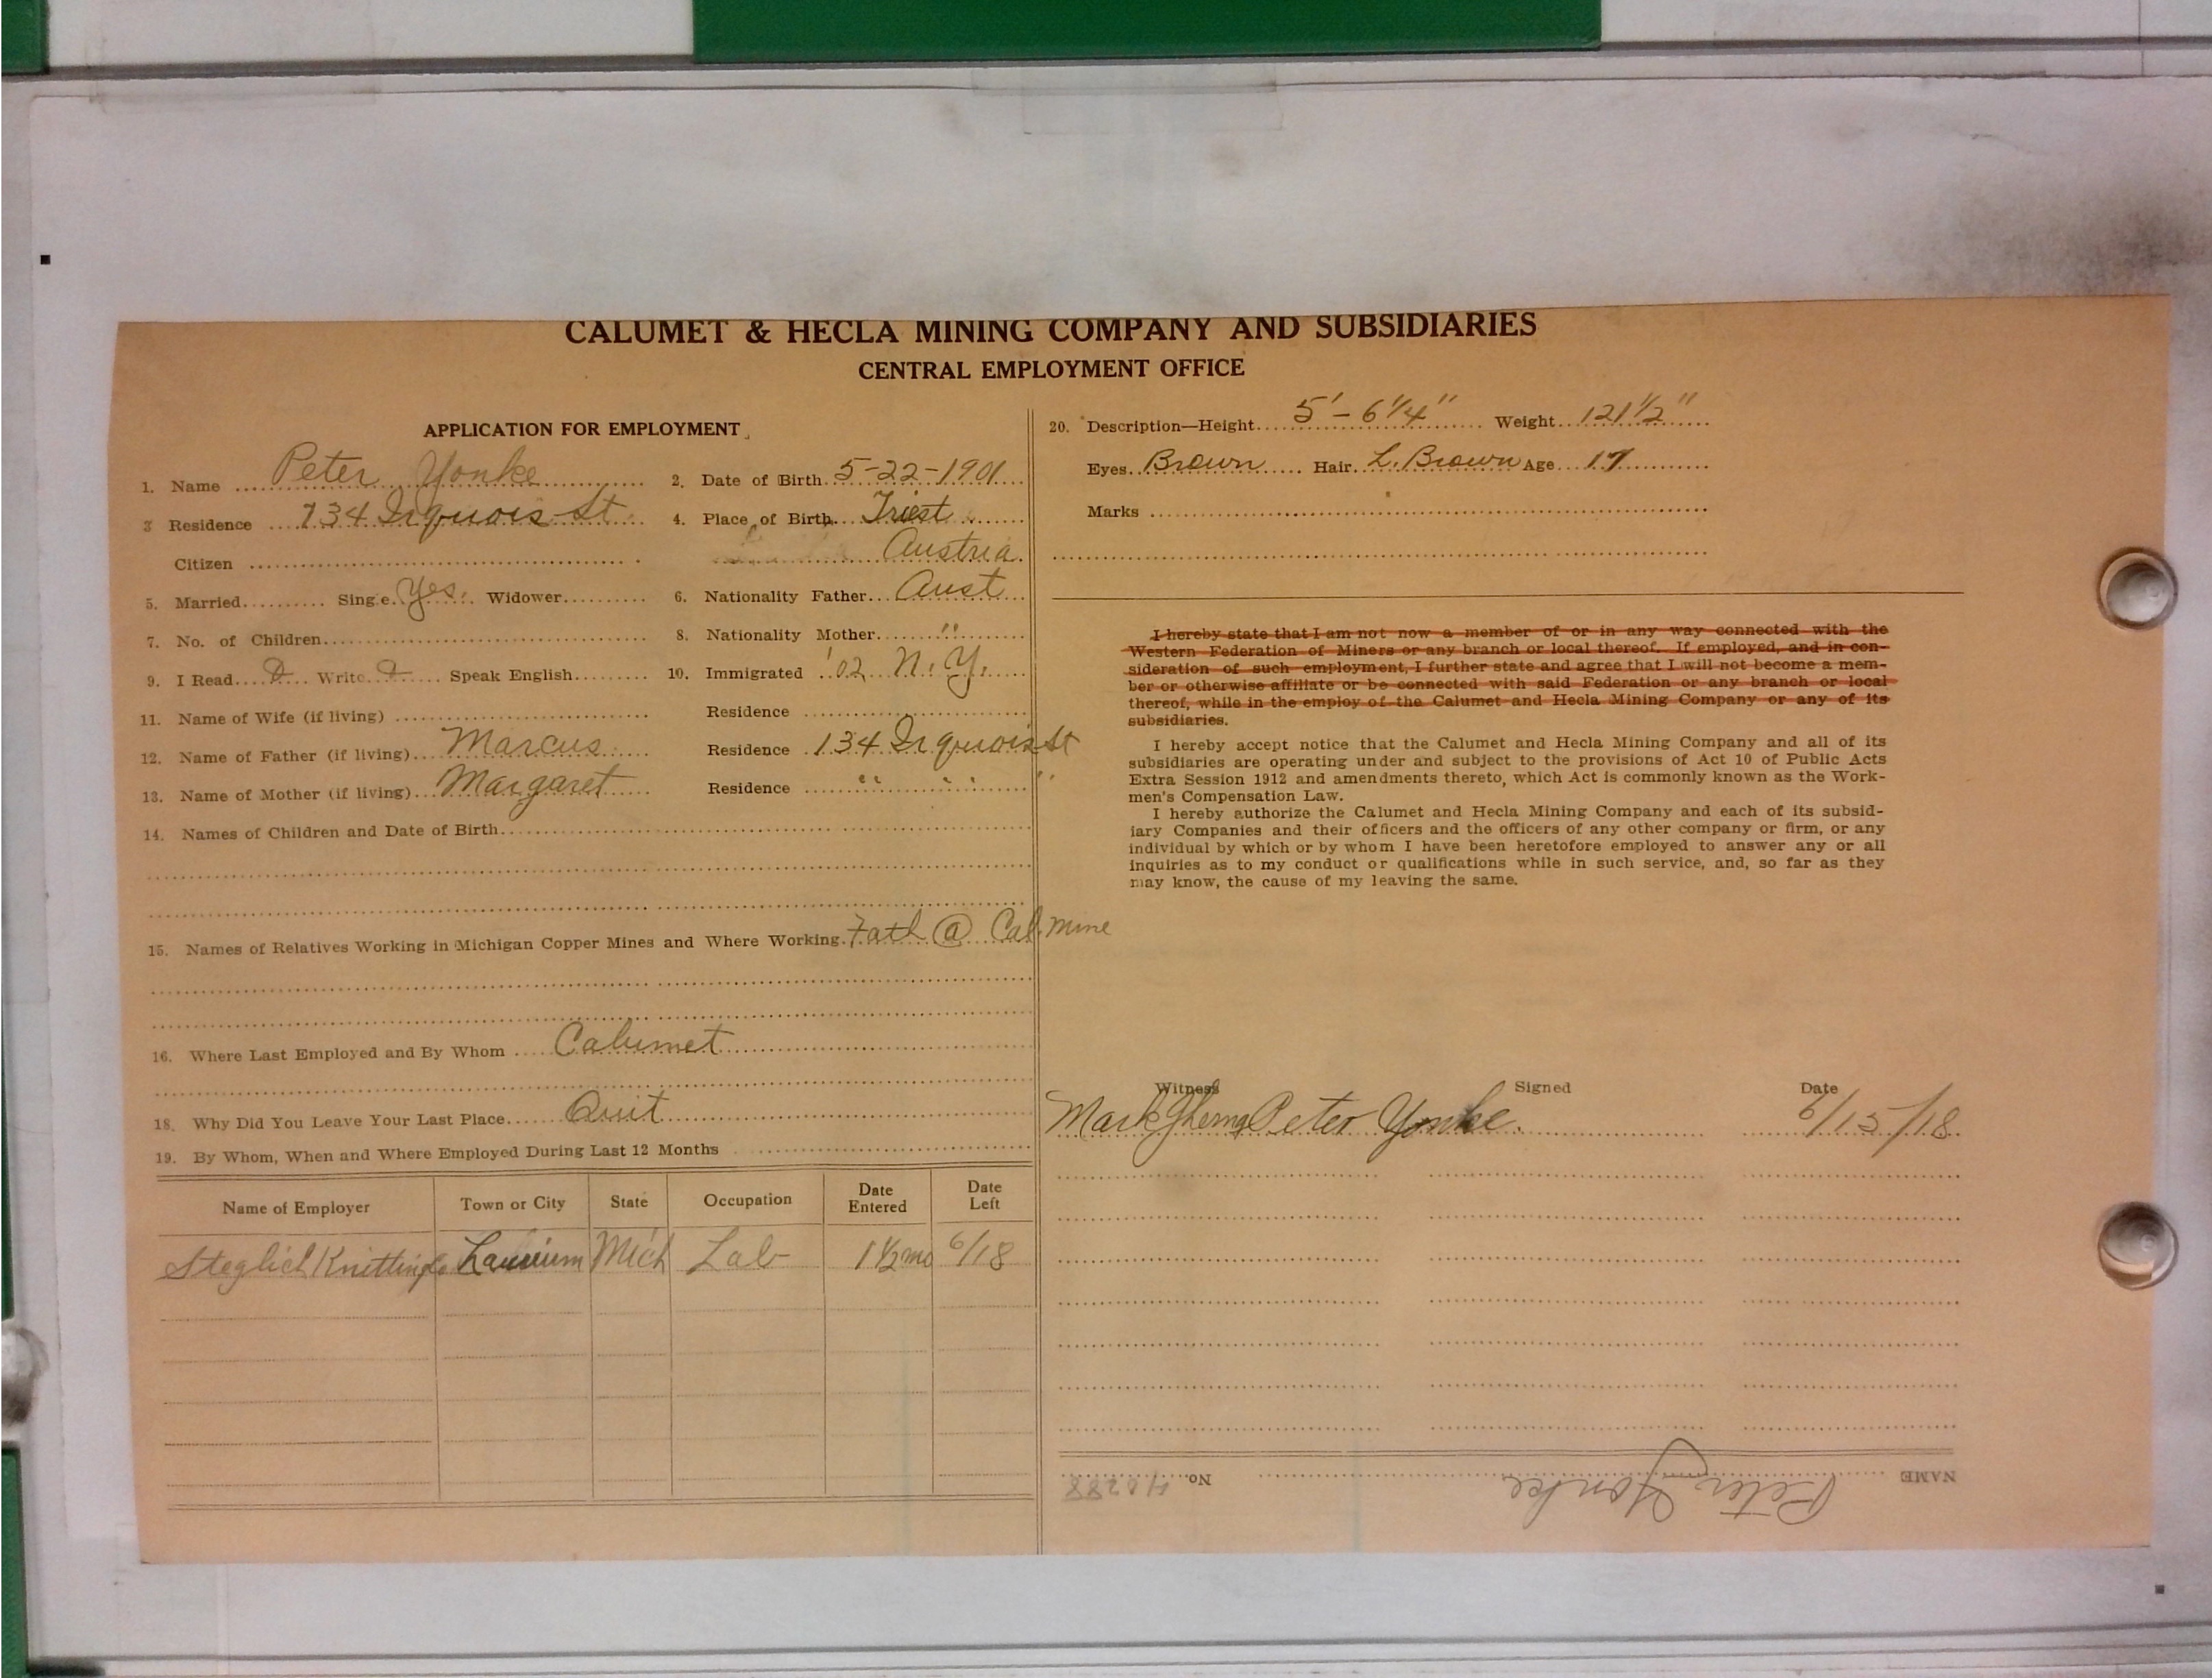 CALUMET & HECLA MINING COMPANY AND SUBSIDIARIES
CENTRAL EMPLOYMENT OFFICE
APPLICATION FOR EMPLOYMENT
1. Name Peter Yonke
2. Date of Birth 5-22-1901
3 Residence 134 Irquois St
4. Place of Birth Triest
Citizen
Austria
5. Married Single Yes. Widower
6. Nationality Father Aust
7. No. of Children
8. Nationality Mother "
9. I Read Write Speak English
10. Immigrated '02 N.Y.
11. Name of Wife (if living)
Residence
12. Name of Father (if living) Marcus
Residence 134 Irquois St
13. Name of Mother (if living) Margaret
Residence " " "
14. Names of Children and Date of Birth
15. Names of Relatives Working in Michigan Copper Mines and Where Working Fath @ Cal Mine
16. Where Last Employed and By Whom Calumet
18. Why Did You Leave Your Last Place Quit
19. By Whom, When and Where Employed During Last 12 Months
Name of Employer Town or City State Occupation Date Entered Date Left
Steglich Knitting Co Laurium Mich Lab 1 1/2 mo 6/18
20. Description—Height 5'-6 1/4" Weight 121 1/2"
Eyes Brown Hair L. Brown Age 17
Marks
I hereby state that I am not now a member of or in any way connected with the
Western Federation of Miners or any branch or local thereof. If employed, and in con-
sideration of such employment, I further state and agree that I will not become a mem-
ber or otherwise affiliate or be connected with said Federation or any branch or local
thereof, while in the employ of the Calumet and Hecla Mining Company or any of its
subsidiaries.
I hereby accept notice that the Calumet and Hecla Mining Company and all of its
subsidiaries are operating under and subject to the provisions of Act 10 of Public Acts
Extra Session 1912 and amendments thereto, which Act is commonly known as the Work-
men's Compensation Law.
I hereby authorize the Calumet and Hecla Mining Company and each of its subsid-
iary Companies and their officers and the officers of any other company or firm, or any
individual by which or by whom I have been heretofore employed to answer any or all
inquiries as to my conduct or qualifications while in such service, and, so far as they
may know, the cause of my leaving the same.
Witness Signed Date
Mark Peter Yonke. 6/15/18
NAME Peter Yonke No. 40288